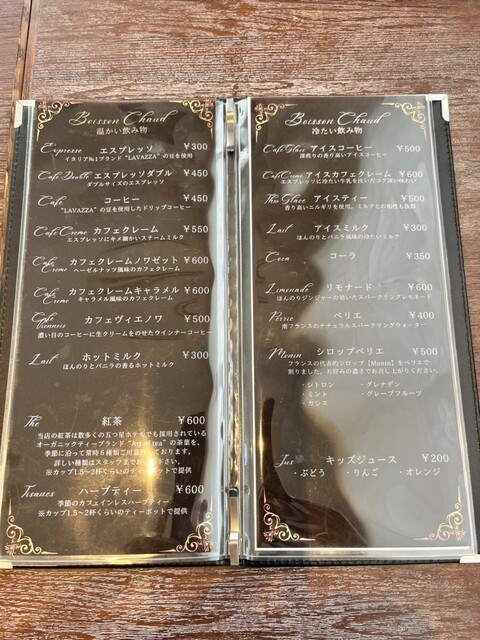 Boisson Chaud
温かい飲み物
Expresso エスプレッソ ¥300
イタリア№1ブランド "LAVAZZA" の豆を使用
Café Double エスプレッソダブル ¥450
ダブルサイズのエスプレッソ
Café コーヒー ¥450
"LAVAZZA" の豆を使用したドリップコーヒー
Café Crème カフェクレーム ¥550
エスプレッソにキメ細かいスチームミルク
Café Crème カフェクレームノワゼット ¥600
ヘーゼルナッツ風味のカフェクレーム
Café Crème カフェクレームキャラメル ¥600
キャラメル風味のカフェクレーム
Café Viennois カフェヴィエノワ ¥500
濃い目のコーヒーに生クリームをのせたウインナーコーヒー
Lait ホットミルク ¥300
ほんのりとバニラの香るホットミルク
Thé 紅茶 ¥600
当店の紅茶は数多くの五つ星ホテルでも採用されている
オーガニックティーブランド "Art of tea" の茶葉を、
季節に沿って常時6種類ご用意しております。
詳しい種類はスタッフまでお尋ね下さい。
※カップ1.5~2杯くらいのティーポットで提供
Tisanes ハーブティー ¥600
季節のカフェインレスハーブティー
※カップ1.5~2杯くらいのティーポットで提供
Boisson Chaud
冷たい飲み物
Café Glacé アイスコーヒー ¥500
深煎りの香り高いアイスコーヒー
Café Crème アイスカフェクレーム ¥600
エスプレッソに冷たい牛乳を注いだコク深い味わい
Thé Glacé アイスティー ¥500
香り高いニルギリを使用。ミルクとの相性も抜群
Lait アイスミルク ¥300
ほんのりとバニラ風味の冷たいミルク
Coca コーラ ¥350
Limonade リモナード ¥600
ほんのりジンジャーの効いたスパークリングレモネード
Perrie ペリエ ¥400
南フランスのナチュラルスパークリングウォーター
Monin シロップペリエ ¥500
フランスの代表的シロップ【Monin】をペリエで
割りました。お好みの濃さでお召し上がりください。
・シトロン ・グレナデン
・ミント ・グレープフルーツ
・カシス
Jus キッズジュース ¥200
・ぶどう ・りんご ・オレンジ